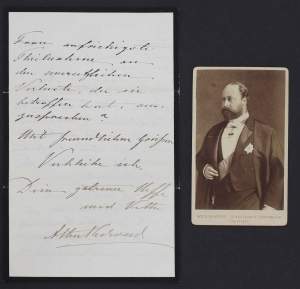 Frau aufrichtigste
Theilnahme an
den unersetzlichen
Verluste, der sie
betroffen hat, aus-
zusprechen?
Mit freundlichen Grüßen
Verbleibe ich
Dein getreuer Neffe
und Vetter
Albert Edward